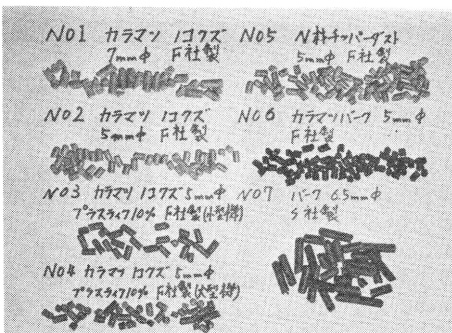 NO1 カラマツ ノコクズ
7mmφ F社製
NO2 カラマツ ノコクズ
5mmφ F社製
NO3 カラマツ ノコクズ 5mmφ
プラスライフ10% F社製(小型機)
NO4 カラマツ ノコクズ 5mmφ
プラスライフ10% F社製(大型機)
NO5 N材チッパーダスト
5mmφ F社製
NO6 カラマツバーク 5mmφ
F社製
NO7 バーク 6.5mmφ
S社製